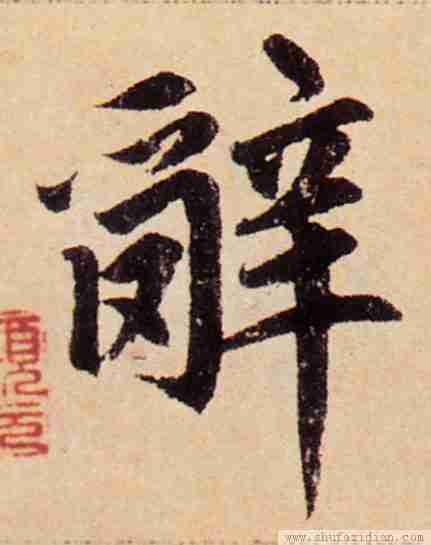 辭
www.shufazidian.com